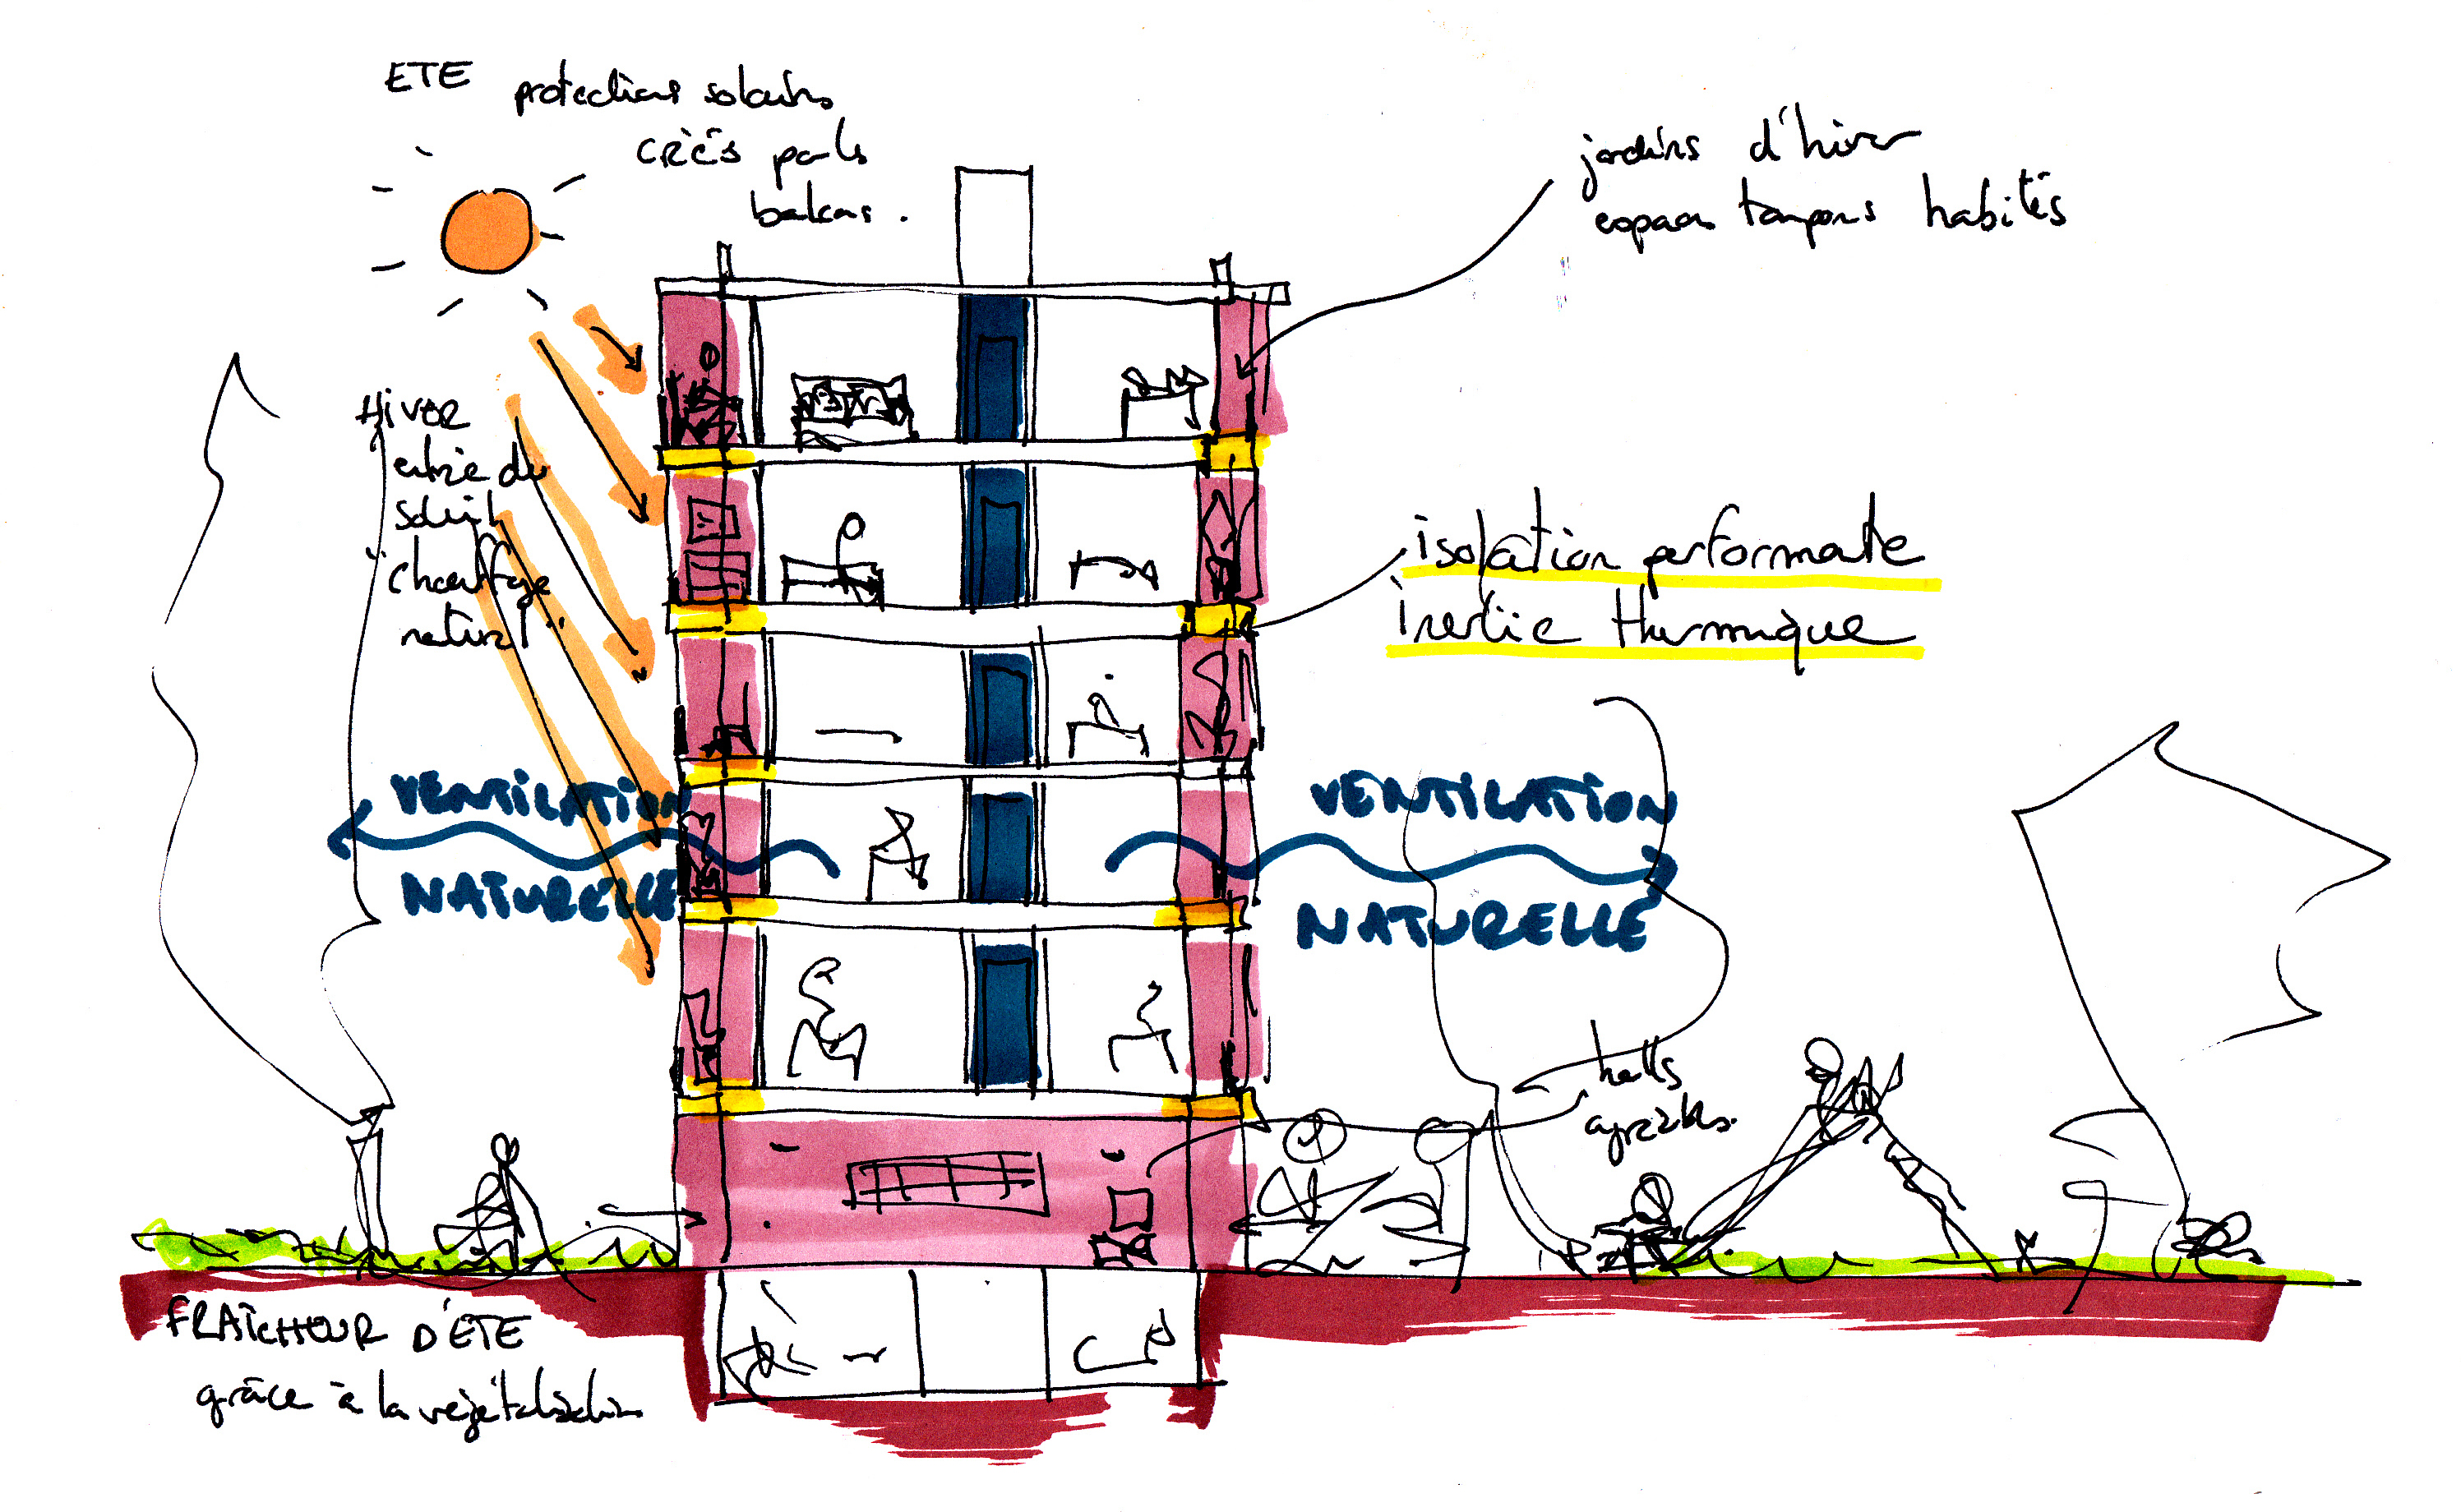 ETE
protections solaires
créés par les
balcons.
jardins d'hiver
espaces tampons habités
Hiver
entrée du
soleil
"chauffage
naturel"
isolation performante
inertie thermique
VENTILATION
NATURELLE
VENTILATION
NATURELLE
halls
agréables.
FRAÎCHEUR D'ÉTE
grâce à la végétalisation